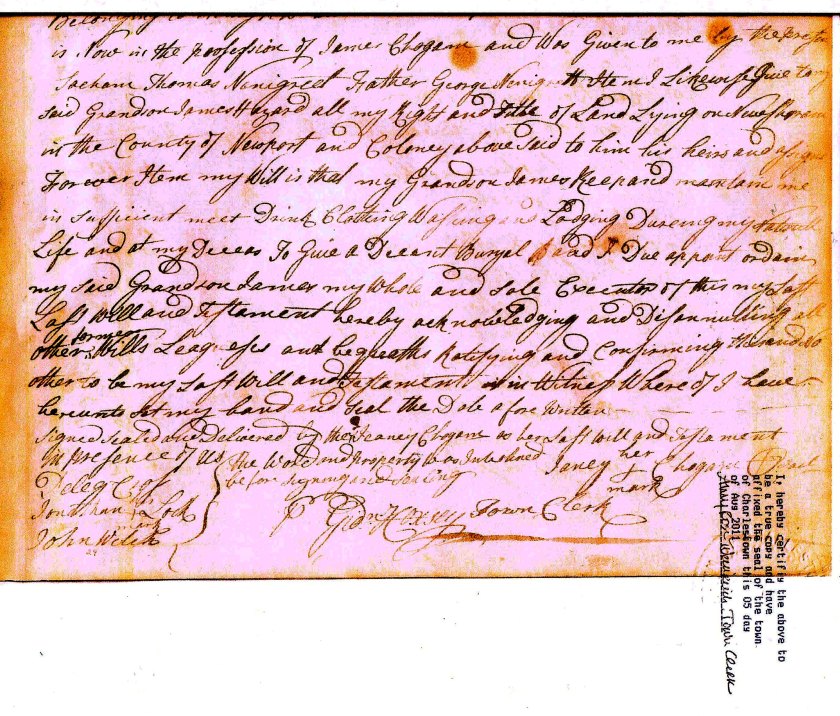 Belonging to
is Now in the possession of James Chogam and Was Given to me by the
Sachem Thomas Nenigreet Father George Nenigrett Item I Likewise Give to my
said Grandson James Hazard all my Right and Title of Land Lying on New Shoram
in the County of Newport and Coloney above said to him his heirs and assigns
Forever Item my Will is that my Grandson James Keep and maintain me
in sufficient meet Drink Clothing Washing and Lodging Dureing my Natural
Life and at my Deceas To Give a Decent Buryal And I Due appoint ordain
my said Grandson James my Whole and Sole Executor of this my Last
Last Will and Testament hereby acknowledging and Disannulling all
other former Wills Leageses and bequeaths Ratifying and Confirming this and no
other to be my Last Will and Testament in Witness Where of I have
hereunto set my hand and seal the Date afore writen
Signed Sealed and Delivered by the Jeaney Chogam as her Last will and Testament
In presence of Us
The World and property was Interlined
before signing and sealing
Janey her Chogam Seal
mark
Peleg Cros
Jonathan Lock
mark
John Welch
29
Gidn Hoxsey Town Clerk
I, hereby certifiy the above to
be a true copy and have
affixed the seal of the town
of Charlestown this 05 day
of Aug 2011
Town Clerk